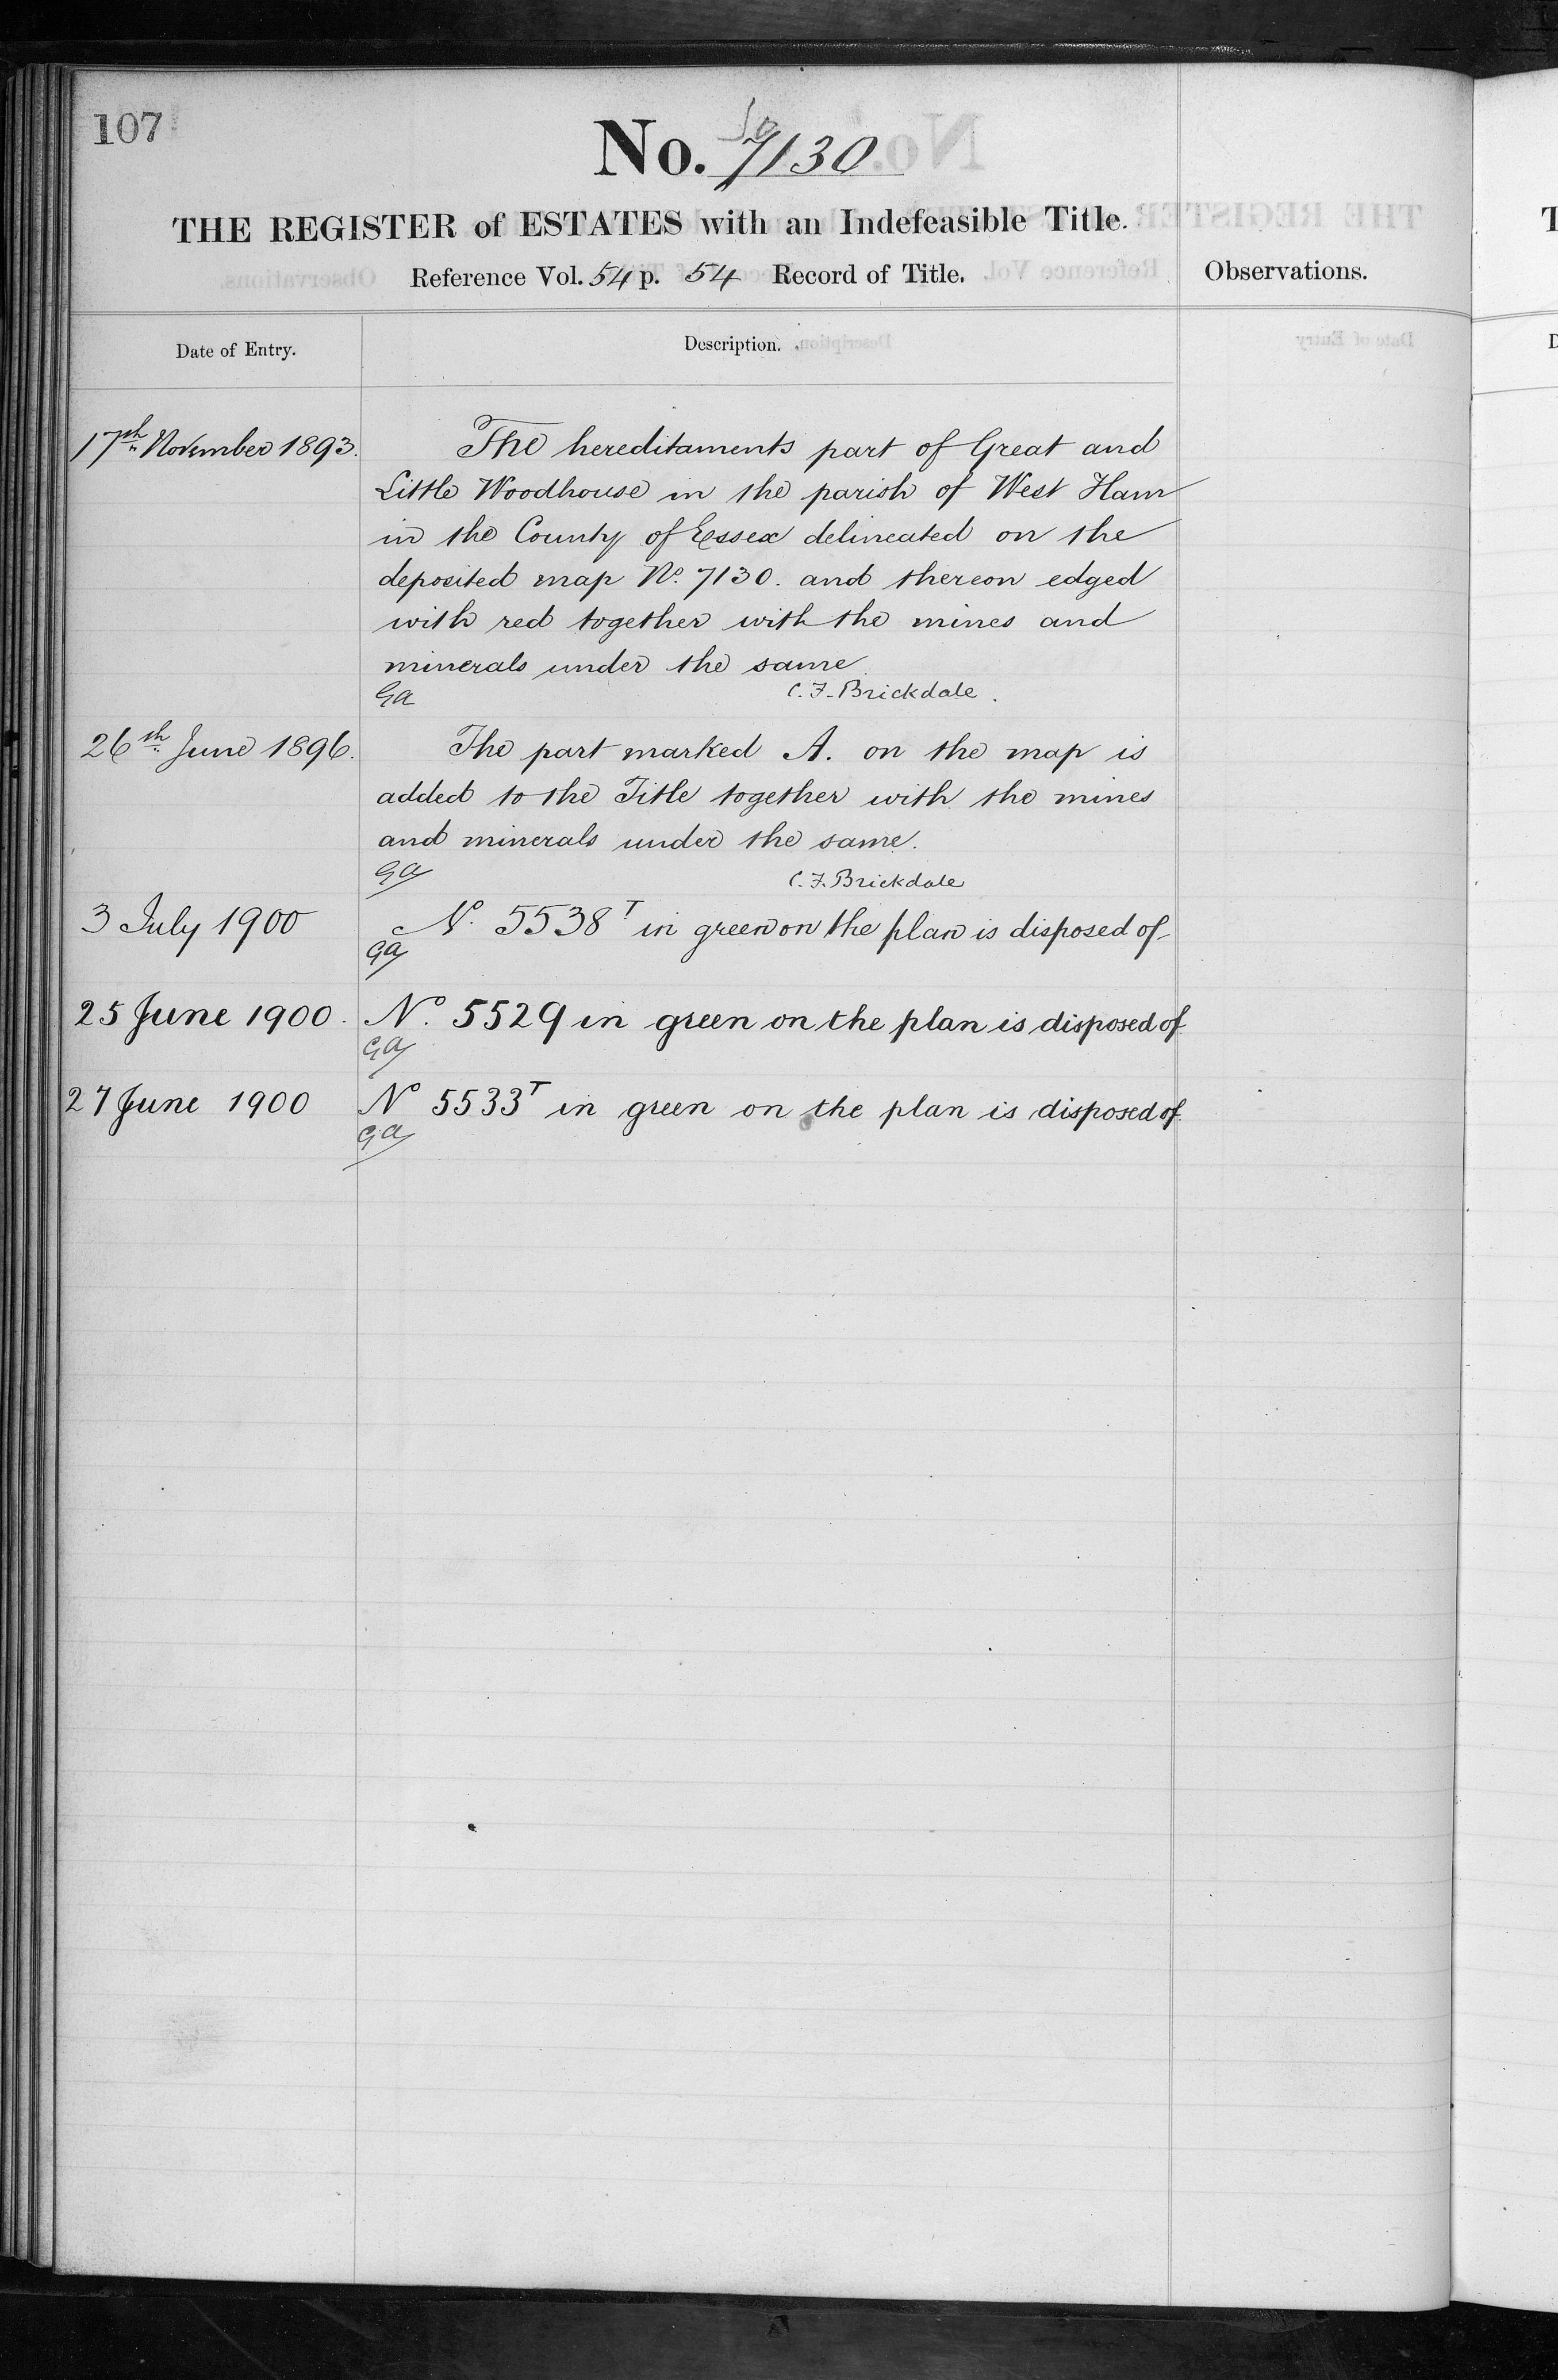 107
No. 7130
THE REGISTER of ESTATES with an Indefeasible Title.
Reference Vol. 54 p. 54 Record of Title.
Observations.
Date of Entry.
Description.
17th November 1893.
The hereditaments part of Great and
Little Woodhouse in the parish of West Ham
in the County of Essex delineated on the
deposited map No. 7130. and thereon edged
with red together with the mines and
minerals under the same
GA
C. F. Brickdale.
26th June 1896.
The part marked A. on the map is
added to the Title together with the mines
and minerals under the same.
GA
C. F. Brickdale
3 July 1900
No. 5538T in green on the plan is disposed of
GA
25 June 1900.
No. 5529 in green on the plan is disposed of
GA
27 June 1900
No 5533T in green on the plan is disposed of.
GA